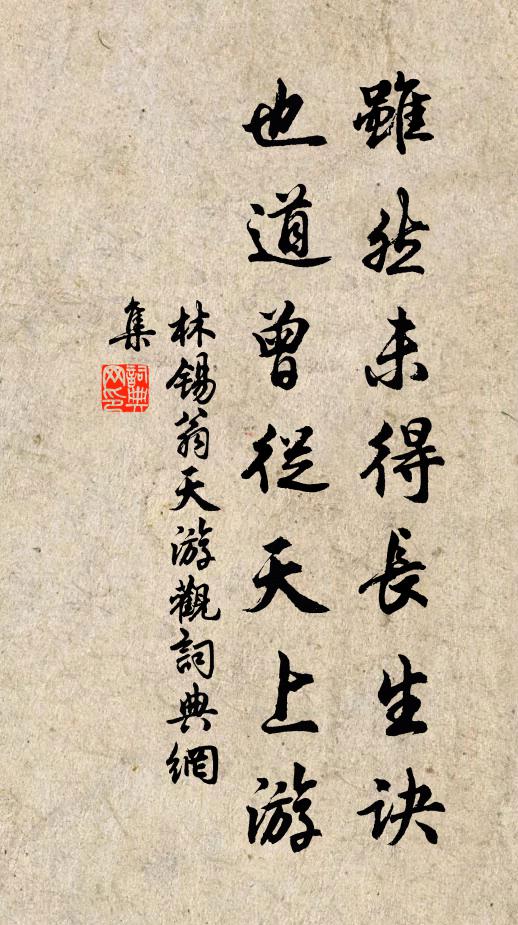 雖然未得長生訣
也道曾從天上游
林錫翁天游觀詞典網
集
詞典網印